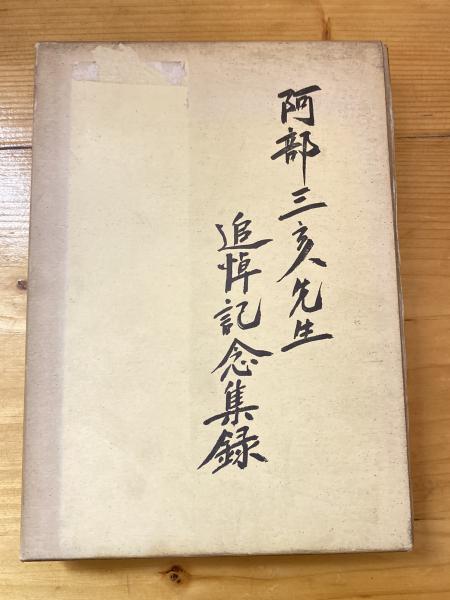 阿部三亥先生
追悼記念集録